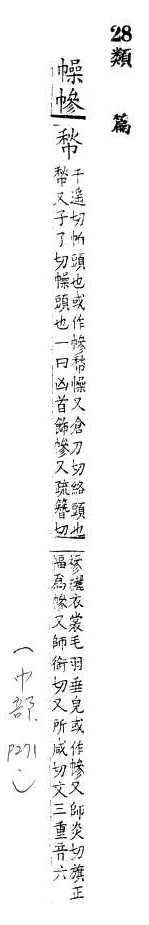 28類篇
幧幓
𢅮
千遥切帕頭也或作幓𢅮幧又倉刀切絡頭也
𢅮又子了切幧頭也一曰凶首飾幓又疏簪切
襂纚衣裳毛羽垂皃或作幓又師炎切旗正
幅爲幓又師銜切又所咸切文三重音六
(巾部 P271)